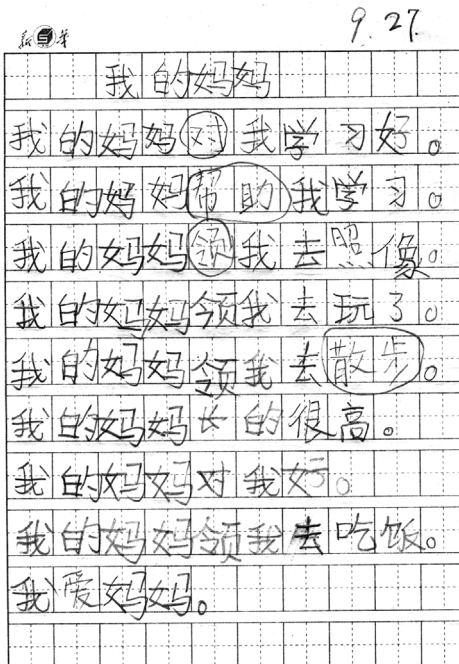 9.27.
新 S 华
我的妈妈
我的妈妈对我学习好。
我的妈妈帮助我学习。
我的妈妈领我去照像。
我的妈妈领我去玩了。
我的妈妈领我去散步。
我的妈妈长的很高。
我的妈妈对我好。
我的妈妈领我去吃饭。
我爱妈妈。